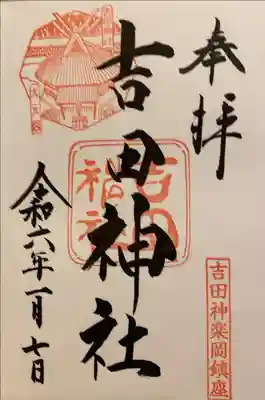 奉拝
吉田神社
吉田神社
令和六年一月七日
吉田神楽岡鎮座